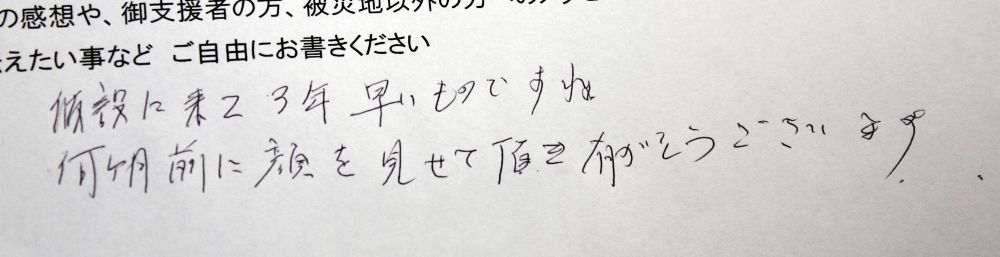 の感想や、御支援者の方、被災地以外の方へのメッセ
えたい事など ご自由にお書きください
仮設に来て 3年 早いものですね
何ケ月前に顔を見せて頂き有がとうございます